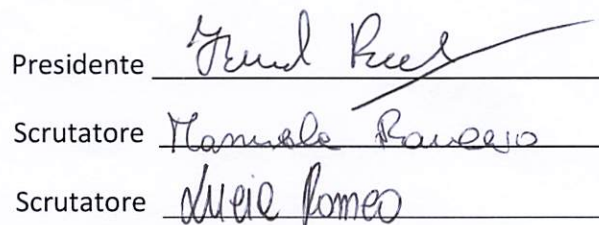 Presidente
Scrutatore Manuela
Scrutatore Lucia Romeo